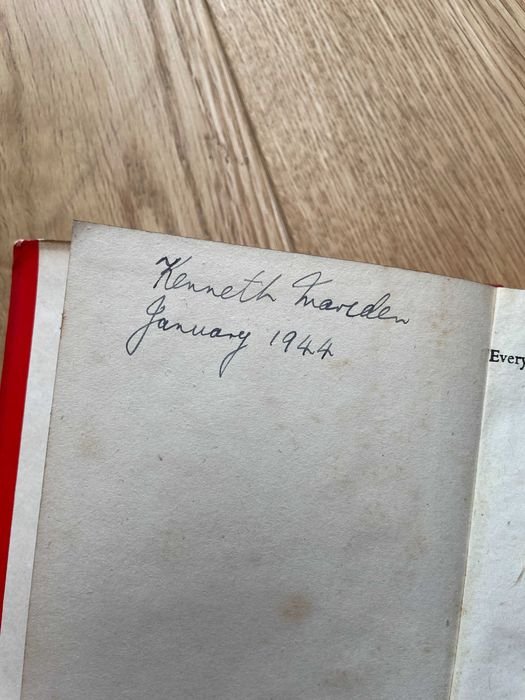 Kenneth Marsden
January 1944
Every